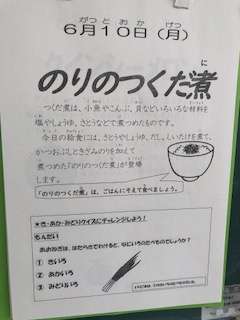 がつ とおか げつ
6月10日(月)
に
のりのつくだ煮
つくだ煮は、小魚やこんぶ、貝などいろいろな材料を
塩やしょうゆ、さとうなどで煮つめたものです。
今日の給食には、さとうやしょうゆ、だし、しいたけを煮て、
かつおぶしときざみのりを加えて
煮つめた『のりのつくだ煮』が登場
します。
「のりのつくだ煮」は、ごはんにそえて食べましょう。
★き・あか・みどりクイズにチャレンジしよう!
もんだい
あおねぎは、はたらきでわけると、なにいろのたべものでしょうか?
① きいろ
② あかいろ
③ みどりいろ